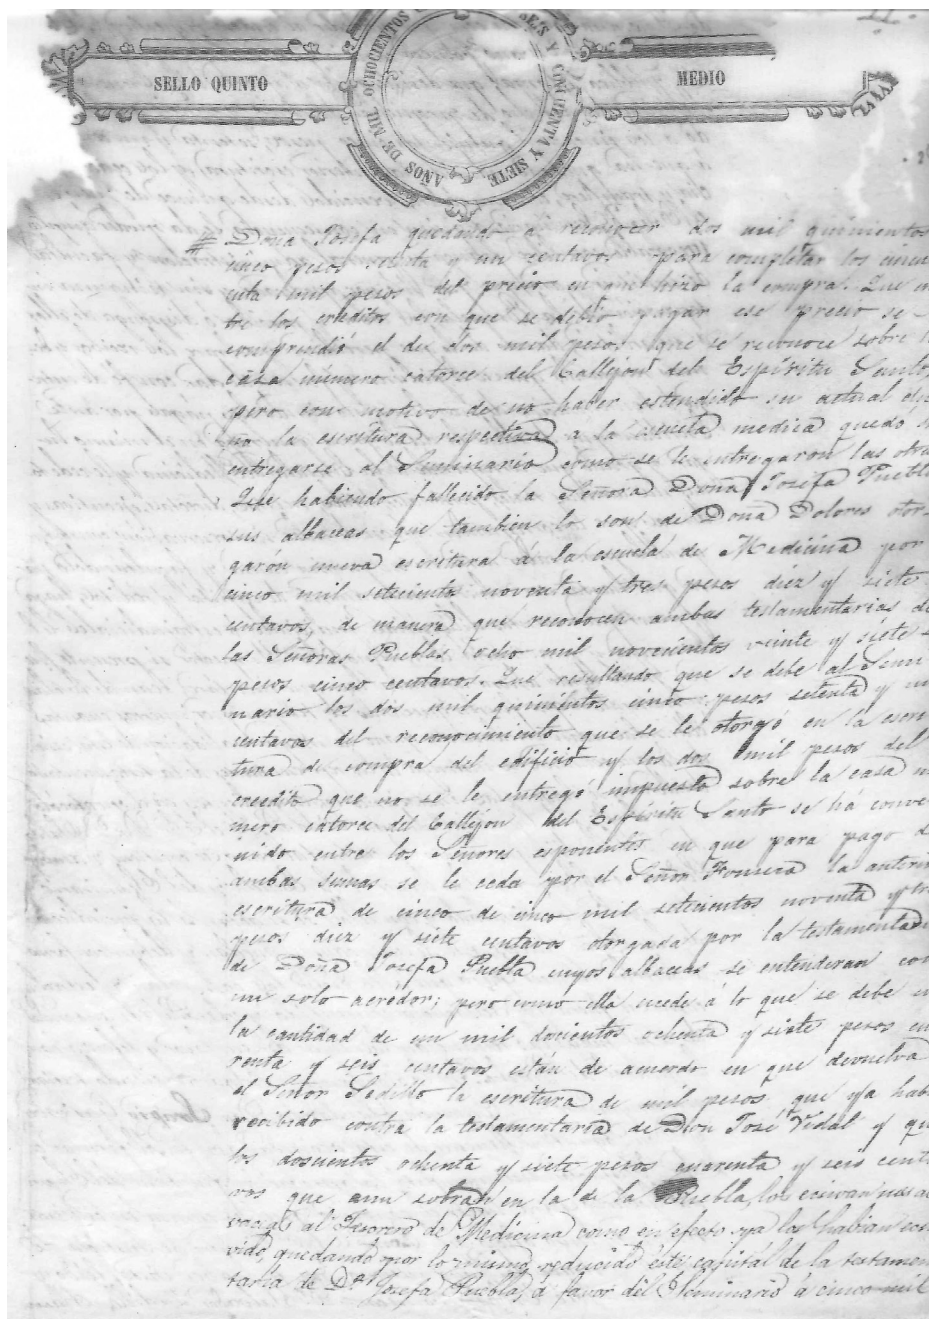 SELLO QUINTO
MEDIO
AÑOS DE MIL OCHOCIENTOS SEIS Y CINCUENTA Y SIETE
Doña Josefa quedando a reconocer dos mil quinientos
cinco pesos setenta y un centavos para completar los cincu
enta mil pesos del precio en que hizo la compra. Que en
tre los creditos con que se debio pagar ese precio se
comprendió el de dos mil pesos que se reconoce sobre la
casa número catorce del Callejon del Espíritu Santo
pero con motivo de no haber estendido su actual due
ño la escritura respectiva a la escuela medica quedó sin
entregarse al Seminario como se le entregaron las otras
Que habiendo fallecido la Señora Doña Josefa Puebla
sus albaceas que tambien lo son de Doña Dolores otor-
garón nueva escritura á la escuela de Medicina por
cinco mil setecientos noventa y tres pesos diez y siete
centavos, de manera que reconocen ambas testamentarias de
las Señoras Pueblas ocho mil novecientos veinte y siete
pesos cinco centavos. Que resultando que se debe al Semi
nario los dos mil quinientos cinco pesos setenta y un
centavos del reconocimiento que se le otorgó en la escri
tura de compra del edificio y los dos mil pesos del
credito que no se le entregó impuesto sobre la casa nu
mero catorce del Callejon del Espíritu Santo se há conve
nido entre los Señores esponentes en que para pago de
ambas sumas se le ceda por el Señor Fonseca la anterior
escritura de cinco de cinco mil setecientos noventa y tres
pesos diez y siete centavos otorgada por la testamentaria
de Doña Josefa Puebla cuyos albaceas se entenderan con
un solo acredor; pero como ella ecede á lo que se debe en
la cantidad de un mil docientos ochenta y siete pesos cua
renta y seis centavos están de acuerdo en que devuelva
el Señor Sedillo la escritura de mil pesos que ya habia
recibido contra la testamentaria de Don José Vidal y que
los doscientos ochenta y siete pesos cuarenta y seis centa
vos que aun sobran en la de la Puebla, los
al Tesorero de Medicina como en efecto ya los habian
quedando por lo mismo reducido este capital de la testamen
taria de Dª Josefa Puebla, á favor del Seminario á cinco mil